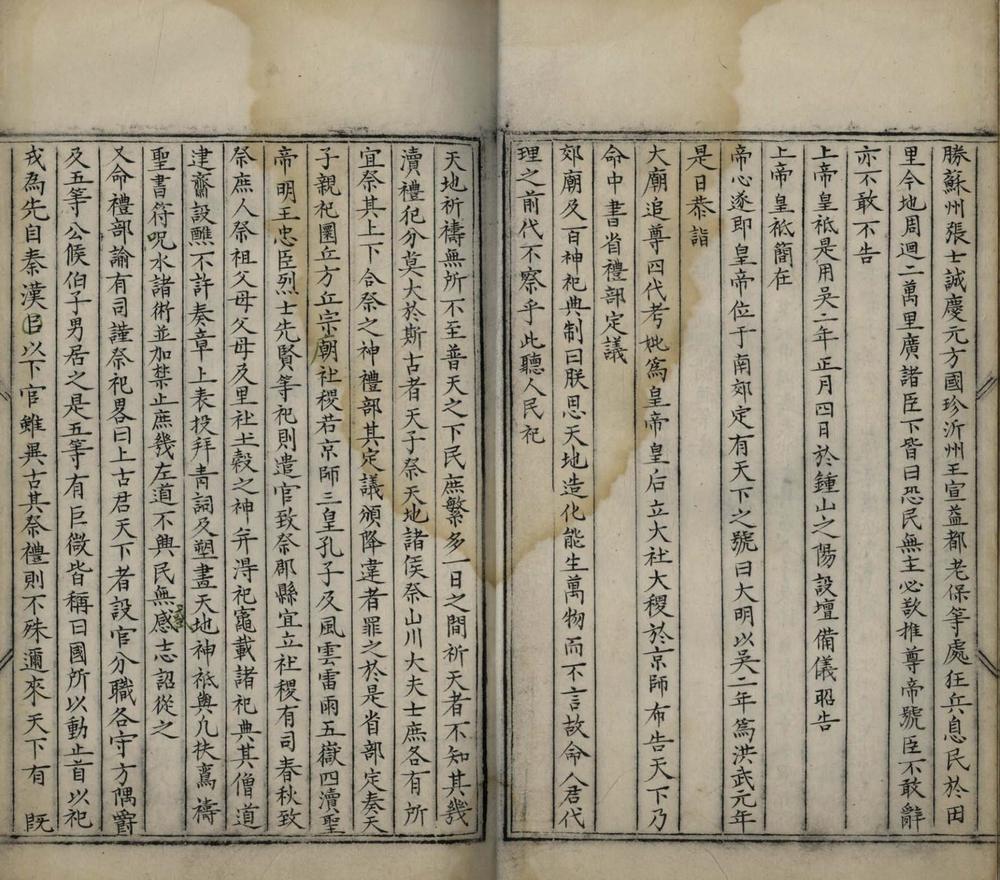 勝蘇州張士誠慶元方國珍沂州王宣益都老保等處狂兵息民於田
里今地周迴二萬里廣諸臣下皆曰恐民無主必欲推尊帝號臣不敢辭
亦不敢不告
上帝皇祇是用吳二年正月四日於鍾山之陽設壇備儀昭告
上帝皇祇簡在
帝心遂即皇帝位于南郊定有天下之號曰大明以吳二年爲洪武元年
是日恭詣
大廟追尊四代考妣爲皇帝皇后立大社大稷於京師布告天下乃
命中書省禮部定議
郊廟及百神祀典制曰朕思天地造化能生萬物而不言故命人君代
理之前代不察乎此聽人民祀
天地祈禱無所不至普天之下民庶繁多一日之間祈天者不知其幾
瀆禮犯分莫大於斯古者天子祭天地諸侯祭山川大夫士庶各有所
宜祭其上下合祭之神禮部其定議頒降違者罪之於是省部定奏天
子親祀圜丘方丘宗廟社稷若京師三皇孔子及風雲雷雨五嶽四瀆聖
帝明王忠臣烈士先賢等祀則遣官致祭郡縣宜立社稷有司春秋致
祭庶人祭祖父母父母及里社土穀之神并得祀竈載諸祀典其僧道
建齋設醮不許奏章上表投拜青詞及塑畫天地神祇與凡扶鸞禱
聖書符呪水諸術並加禁止庶幾左道不興民無感惑志詔從之
又命禮部諭有司謹祭祀畧曰上古君天下者設官分職各守方隅爵
及五等公候伯子男居之是五等有巨微皆稱曰國所以動止首以祀
戎為先自秦漢以下官雖異古其祭禮則不殊邇來天下有既